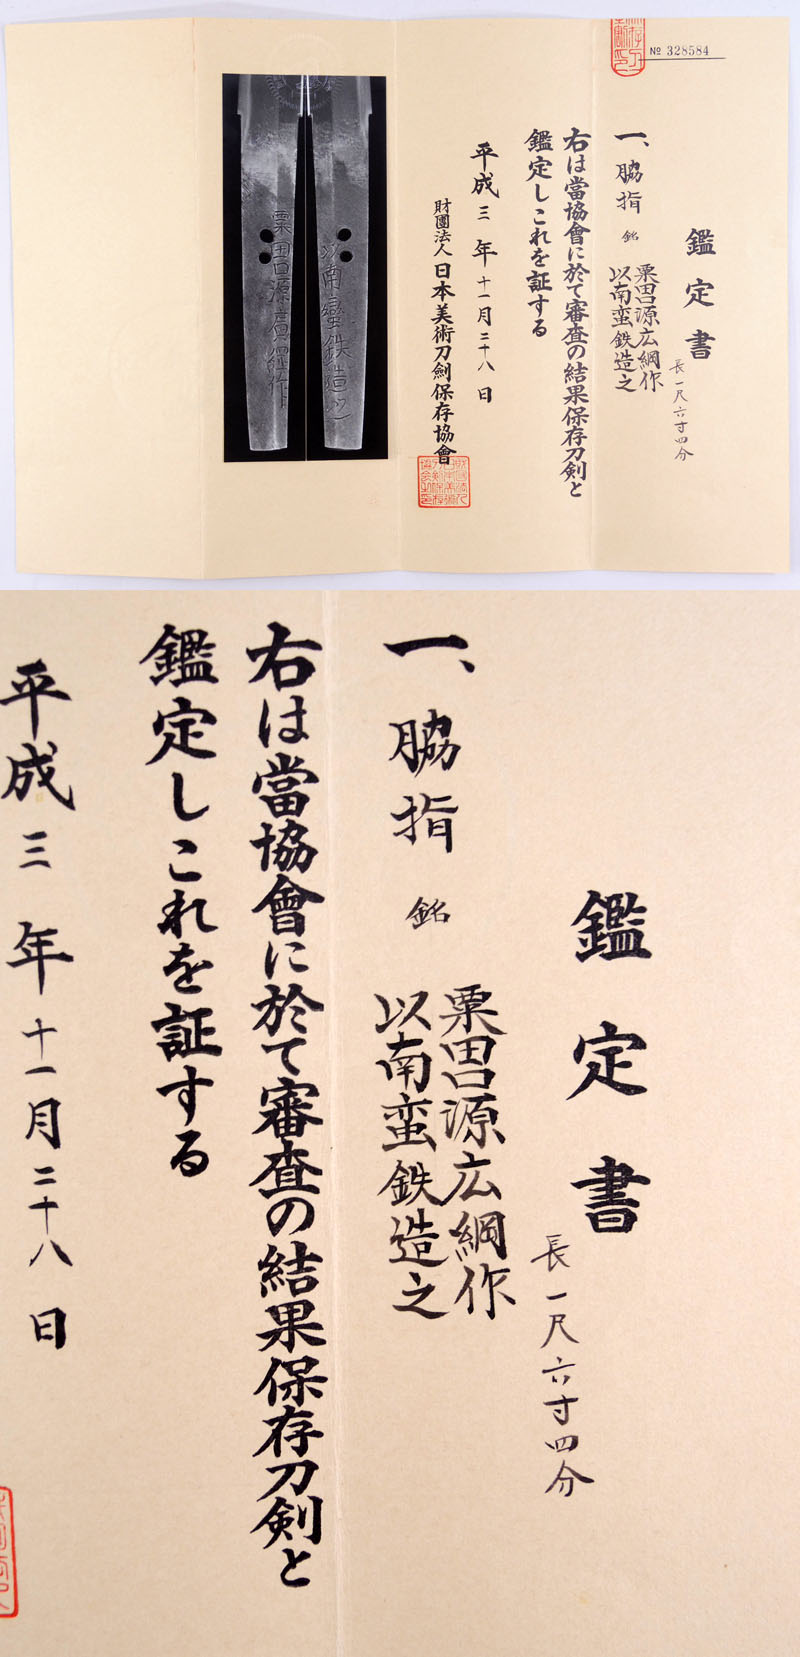 № 328584
鑑定書
長一尺六寸四分
一、脇指 銘 粟田口源広綱作
以南蛮鉄造之
右は當協會に於て審査の結果保存刀剣と
鑑定しこれを証する
平成三年十一月二十八日
財團法人日本美術刀劍保存協會
以南蠻鉄造之
粟田口源廣綱作
鑑定書
長一尺六寸四分
一、脇指 銘 粟田口源広綱作
以南蛮鉄造之
右は當協會に於て審査の結果保存刀剣と
鑑定しこれを証する
平成三年十一月二十八日